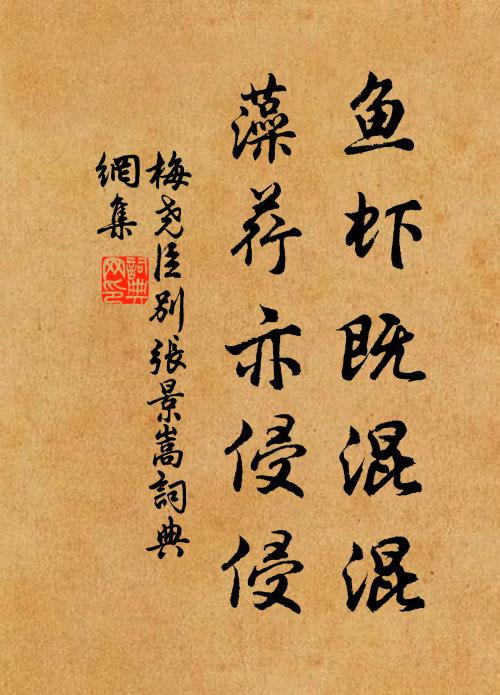 鱼虾既混混
藻荇亦侵侵
梅尧臣别張景嵩詞典
網集
詞典
网印